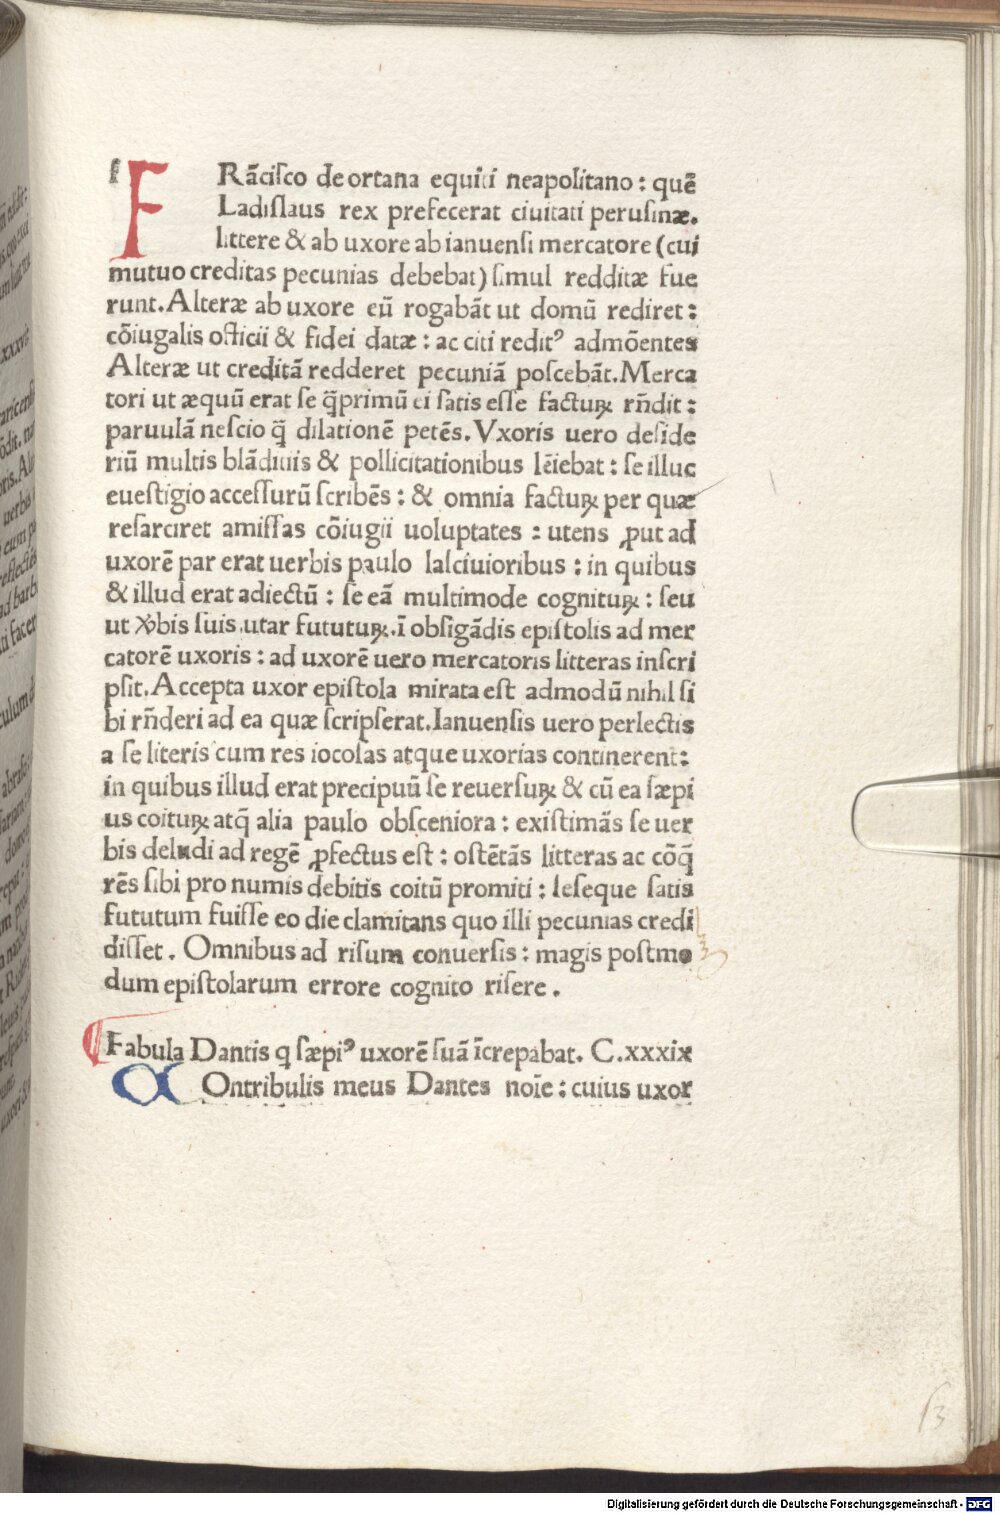 FRãcisco de ortana equiti neapolitano: quẽ
Ladislaus rex prefecerat ciuitati perusinæ.
littere & ab uxore ab ianuensi mercatore (cui
mutuo creditas pecunias debebat) simul redditæ fue
runt. Alteræ ab uxore eũ rogabãt ut domũ rediret:
cõiugalis officii & fidei datæ: ac citi reditꝰ admõentes
Alteræ ut creditã redderet pecuniã poscebãt. Merca
tori ut æquũ erat se q̃primũ ei satis esse facturꝝ rñdit:
paruulã nescio q̃ dilationẽ petẽs. Vxoris uero deside
riũ multis blãdiuiis & pollicitationibus lẽiebat: se illuc
euestigio accessurũ scribẽs: & omnia facturꝝ per quæ
resarciret amissas cõiugii uoluptates: utens ꝓut ad
uxorẽ par erat uerbis paulo lasciuioribus: in quibus
& illud erat adiectũ: se eã multimode cogniturꝝ: seu
ut ꝟbis suis utar fututurꝝ. ĩ obsigãdis epistolis ad mer
catorẽ uxoris: ad uxorẽ uero mercatoris litteras inscri
psit. Accepta uxor epistola mirata est admodũ nihil si
bi rñderi ad ea quæ scripserat. Ianuensis uero perlectis
a se literis cum res iocosas atque uxorias continerent:
in quibus illud erat precipuũ se reuersurꝝ & cũ ea sæpi
us coiturꝝ atq̃ alia paulo obsceniora: existimãs se uer
bis deludi ad regẽ ꝓfectus est: ostẽtãs litteras ac cõq̃
rẽs sibi pro numis debitis coitũ promiti: seseque satis
fututum fuisse eo die clamitans quo illi pecunias credi
disset. Omnibus ad risum conuersis: magis postmo
dum epistolarum errore cognito risere.
Fabula Dantis q sæpiꝰ uxorẽ suã ĩcrepabat. C.xxxix
COntribulis meus Dantes noĩe: cuius uxor
13
Digitalisierung gefördert durch die Deutsche Forschungsgemeinschaft - DFG